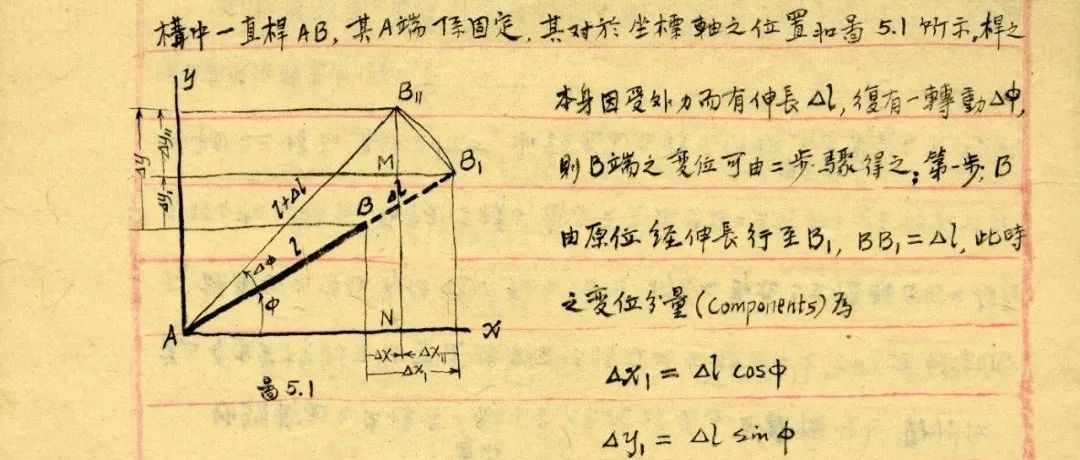 構中一直桿AB, 其A端係固定, 其對於坐標軸之位置如圖5.1所示, 桿之
本身因受外力而有伸長Δl, 復有一轉動Δφ,
則B端之變位可由二步驟得之; 第一步, B
由原位經伸長行至B₁, BB₁ = Δl, 此時
之變位分量(components)為
Δx₁ = Δl cosφ
Δy₁ = Δl sinφ
y
B₁₁
Δy
Δy₁₁
Δy₁
M
B₁
l+Δl
B
Δl
l
Δφ
φ
A
N
x
Δx
Δx₁₁
Δx₁
圖5.1